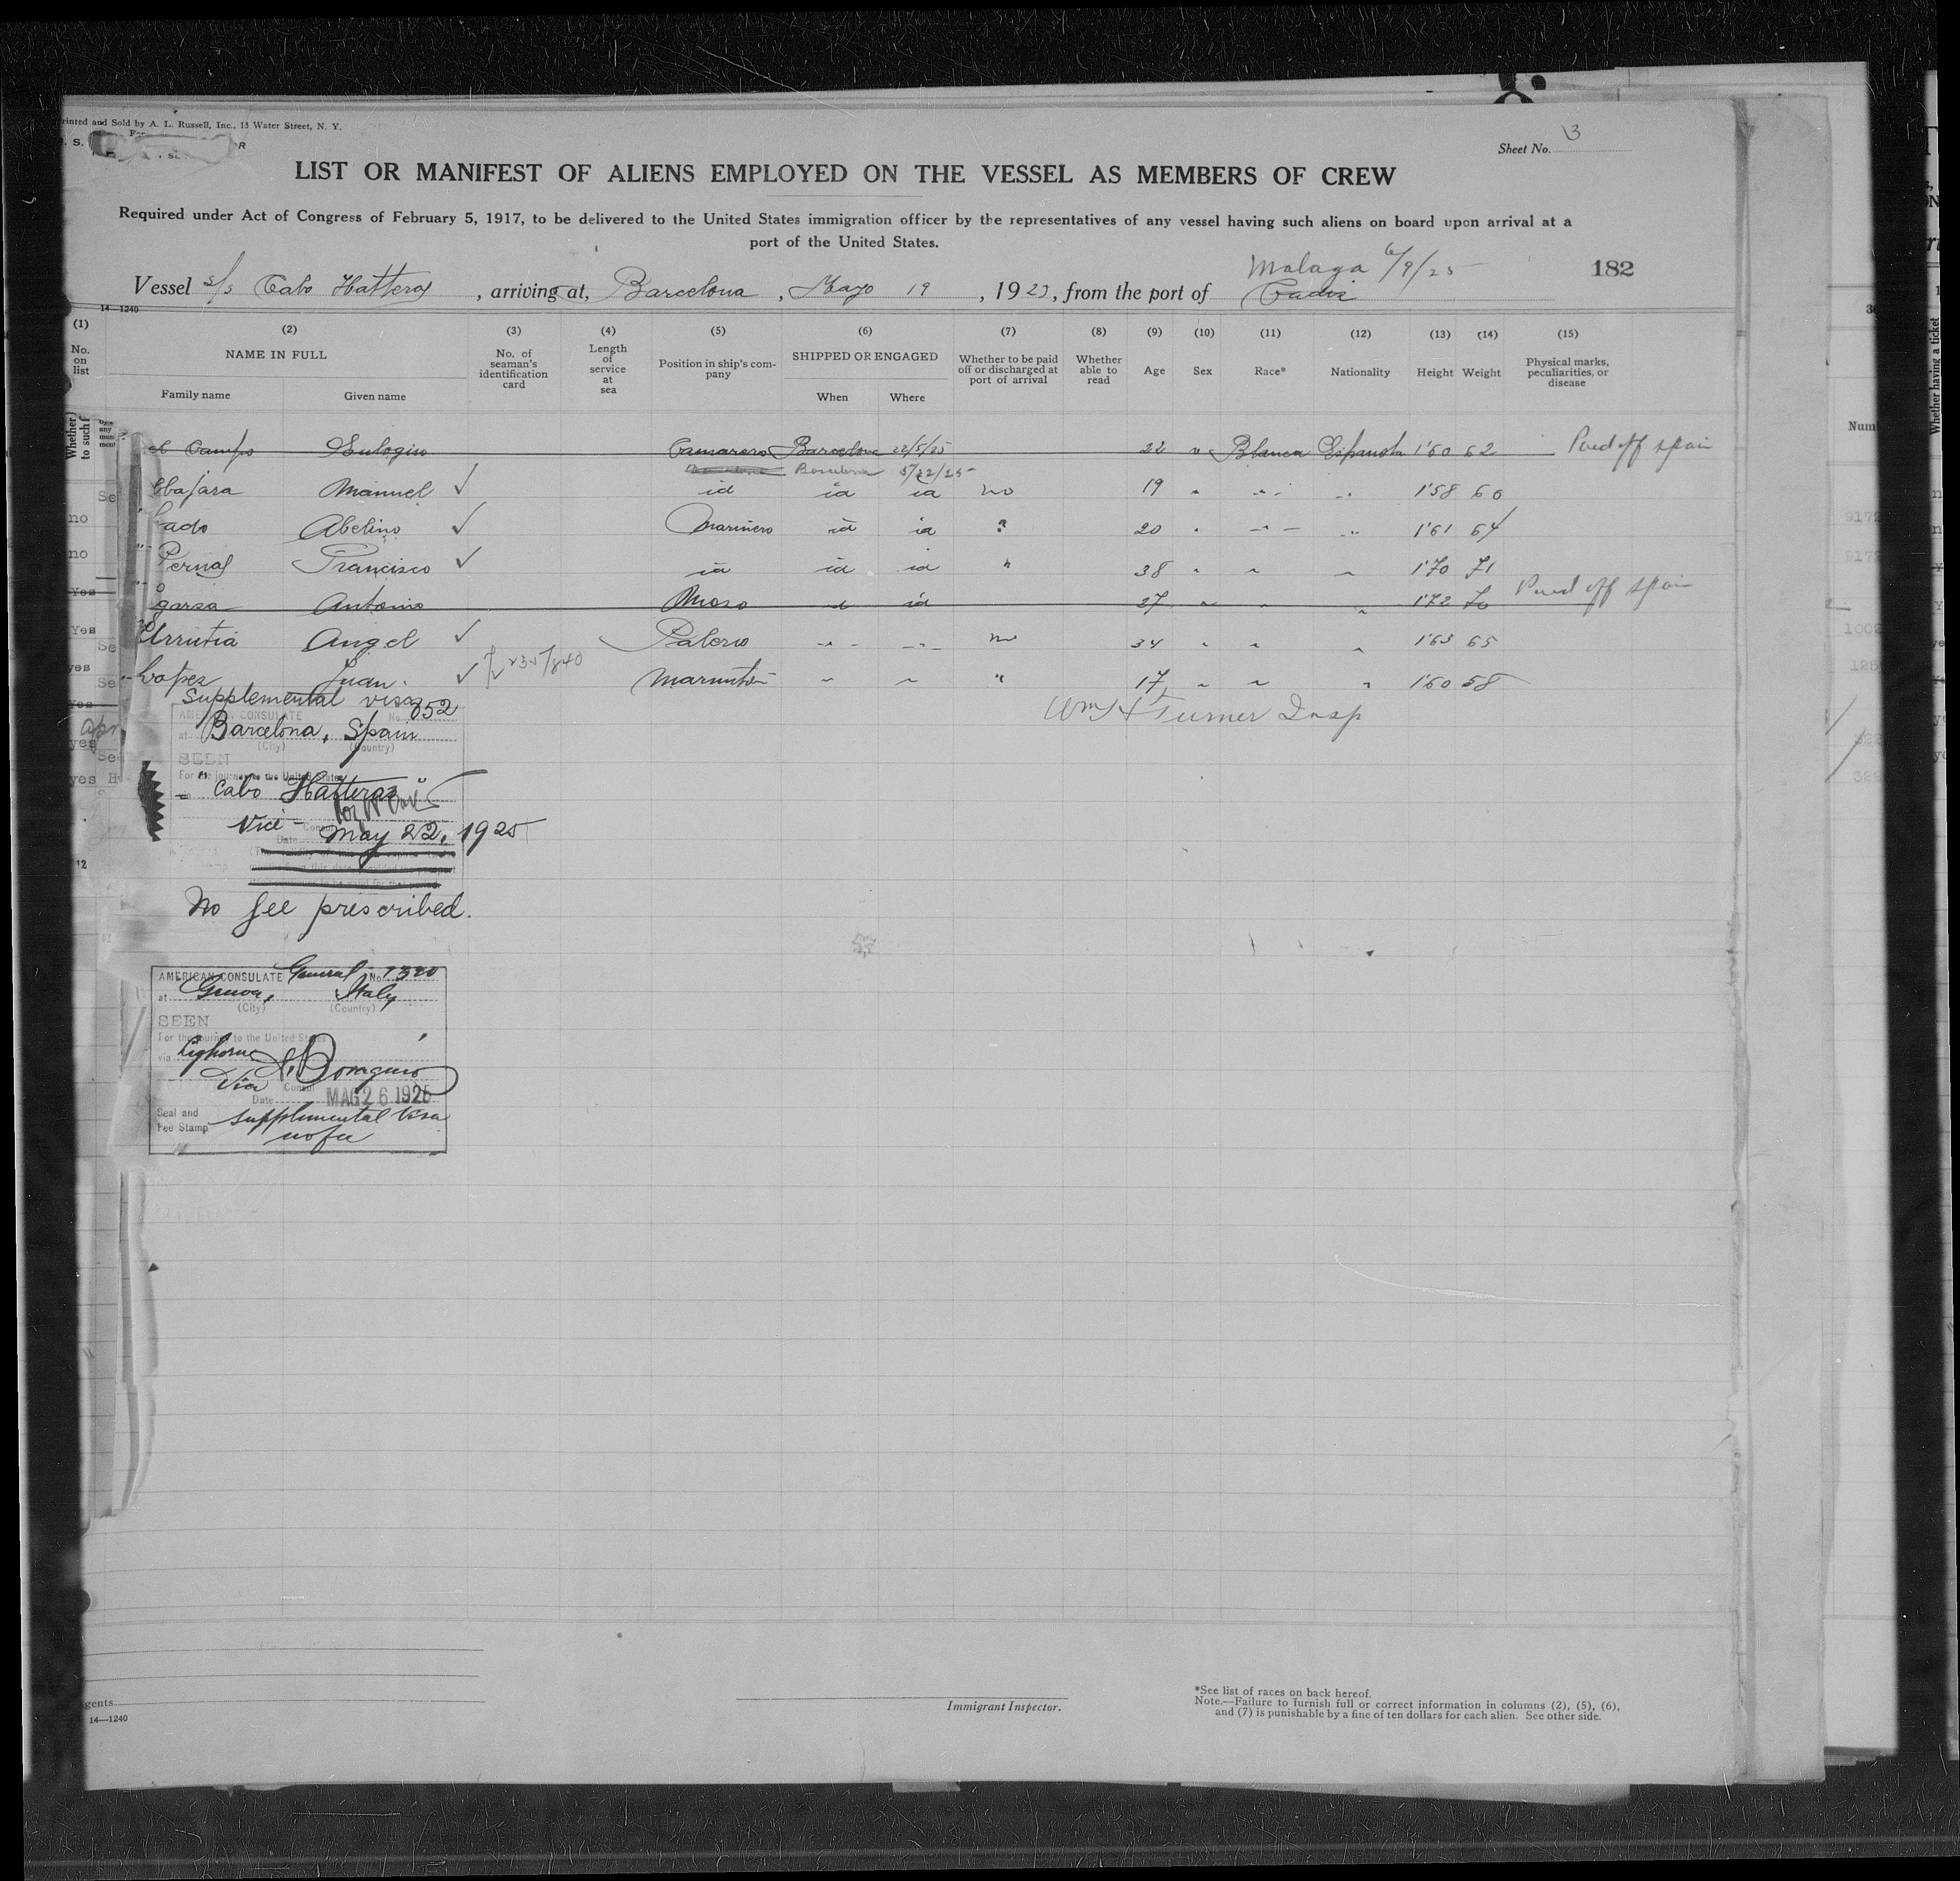 rinted and Sold by A. L. Russell, Inc., 13 Water Street, N. Y.
Sheet No. 13
LIST OR MANIFEST OF ALIENS EMPLOYED ON THE VESSEL AS MEMBERS OF CREW
Required under Act of Congress of February 5, 1917, to be delivered to the United States immigration officer by the representatives of any vessel having such aliens on board upon arrival at a
port of the United States.
Malaga 6/9/25
182
Vessel s/s Cabo Hatteras, arriving at, Barcelona, Mayo 19, 1925, from the port of Cadiz
14—1240
(1) (2) (3) (4) (5) (6) (7) (8) (9) (10) (11) (12) (13) (14) (15)
No. on list
NAME IN FULL
Family name Given name
No. of seaman's identification card
Length of service at sea
Position in ship's company
SHIPPED OR ENGAGED
When Where
Whether to be paid off or discharged at port of arrival
Whether able to read
Age Sex Race* Nationality Height Weight
Physical marks, peculiarities, or disease
Campo Eulogio Camarero Barcelona 22/5/25 22 v Blanca Española 1'60 62 Paid off Spain
Barcelona 5/22/25
Manuel ✓ id id id no 19 " " " 1'58 60
Abelino ✓ Marinero id id " 20 " " " 1'61 64
Pernas Francisco ✓ id id id " 38 " " " 1'70 71
garza Antonio Moso id id 27 " " " 1'72 70 Paid off Spain
Urrutia Angel ✓ Palero " " no 34 " " " 1'63 65
Lopez Juan ✓ " " " 17 " " " 1'60 58
Supplemental visa
Wm H Turner Insp
AMERICAN CONSULATE No. 852
at Barcelona, Spain
(City) (Country)
SEEN
For the journey to the United States
"Cabo Hatteras"
Vice Consul
Date May 22, 1925
No fee prescribed.
AMERICAN CONSULATE General No. 1320
at Genoa, Italy
(City) (Country)
SEEN
For the journey to the United States
via Leghorn
Vice Consul
Date MAG 26 1925
Seal and Fee Stamp supplemental visa
no fee
gents
14—1240
Immigrant Inspector.
*See list of races on back hereof.
Note.—Failure to furnish full or correct information in columns (2), (5), (6),
and (7) is punishable by a fine of ten dollars for each alien. See other side.